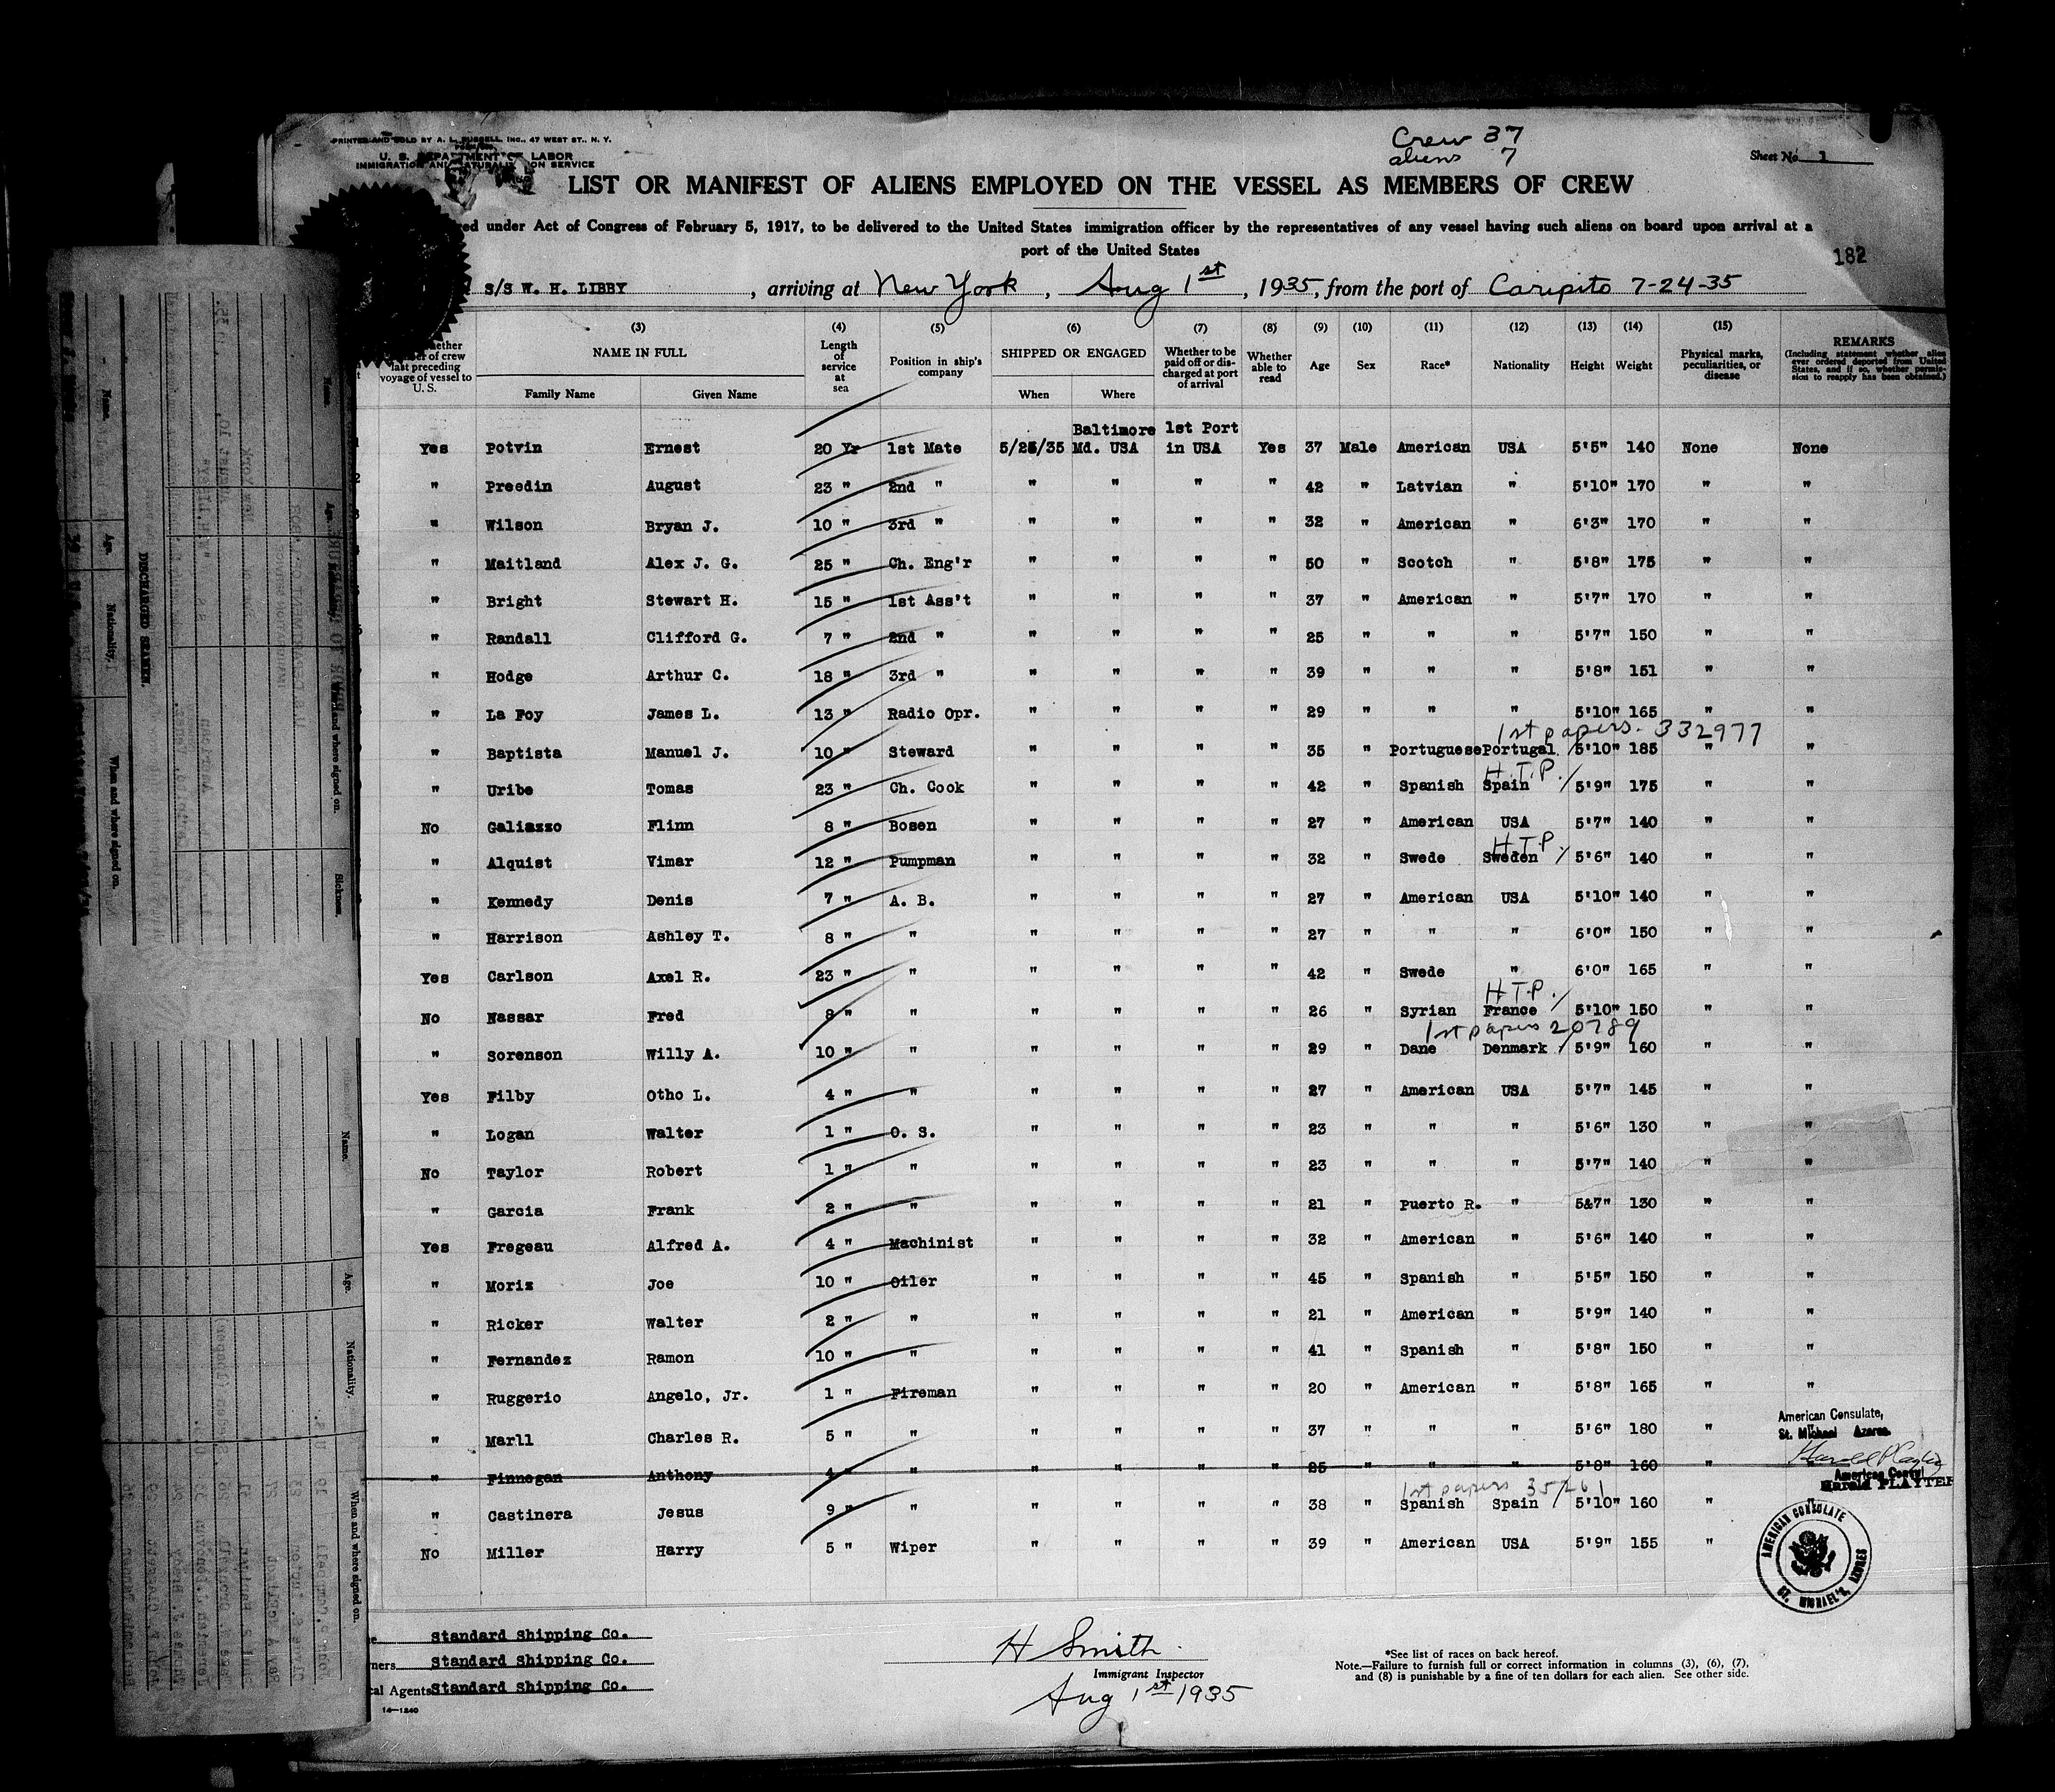 PRINTED AND SOLD BY A. L. RUSSELL, INC., 47 WEST ST., N. Y.
U. S. DEPARTMENT OF LABOR
IMMIGRATION AND NATURALIZATION SERVICE
Crew 37
aliens 7
Sheet No. 1
LIST OR MANIFEST OF ALIENS EMPLOYED ON THE VESSEL AS MEMBERS OF CREW
under Act of Congress of February 5, 1917, to be delivered to the United States immigration officer by the representatives of any vessel having such aliens on board upon arrival at a
port of the United States
182
S/S W. H. LIBBY , arriving at New York , Aug 1st , 1935, from the port of Caripito 7-24-35
(3) (4) (5) (6) (7) (8) (9) (10) (11) (12) (13) (14) (15)
whether of crew last preceding voyage of vessel to U. S. NAME IN FULL Family Name Given Name Length of service at sea Position in ship's company SHIPPED OR ENGAGED When Where Whether to be paid off or discharged at port of arrival Whether able to read Age Sex Race* Nationality Height Weight Physical marks, peculiarities, or disease REMARKS (Including statement whether alien ever ordered deported from United States, and if so, whether permission to reapply has been obtained.)
Baltimore 1st Port
Yes Potvin Ernest 20 Yr 1st Mate 5/25/35 Md. USA in USA Yes 37 Male American USA 5'5" 140 None None
" Preedin August 23 " 2nd " " " " " 42 " Latvian " 5'10" 170 " "
" Wilson Bryan J. 10 " 3rd " " " " " 32 " American " 6'3" 170 " "
" Maitland Alex J. G. 25 " Ch. Eng'r " " " " 50 " Scotch " 5'8" 175 " "
" Bright Stewart H. 15 " 1st Ass't " " " " 37 " American " 5'7" 170 " "
" Randall Clifford G. 7 " 2nd " " " " " 25 " " " 5'7" 150 " "
" Hodge Arthur C. 18 " 3rd " " " " " 39 " " " 5'8" 151 " "
" La Foy James L. 13 " Radio Opr. " " " " 29 " " " 5'10" 165 " "
1st papers. 332977
" Baptista Manuel J. 10 " Steward " " " " 35 " Portuguese Portugal 5'10" 185 " "
H.T.P.
" Uribe Tomas 23 " Ch. Cook " " " " 42 " Spanish Spain 5'9" 175 " "
No Galiazzo Flinn 8 " Bosen " " " " 27 " American USA 5'7" 140 " "
H.T.P.
" Alquist Vimar 12 " Pumpman " " " " 32 " Swede Sweden 5'6" 140 " "
" Kennedy Denis 7 " A. B. " " " " 27 " American USA 5'10" 140 " "
" Harrison Ashley T. 8 " " " " " " 27 " " " 6'0" 150 " "
Yes Carlson Axel R. 23 " " " " " " 42 " Swede " 6'0" 165 " "
H.T.P.
No Nassar Fred 8 " " " " " " 26 " Syrian France 5'10" 150 " "
1st papers 20789
" Sorenson Willy A. 10 " " " " " " 29 " Dane Denmark 5'9" 160 " "
Yes Filby Otho L. 4 " " " " " " 27 " American USA 5'7" 145 " "
" Logan Walter 1 " O. S. " " " " 23 " " " 5'6" 130 " "
No Taylor Robert 1 " " " " " " 23 " " " 5'7" 140 " "
" Garcia Frank 2 " " " " " " 21 " Puerto R. " 5&7" 130 " "
Yes Fregeau Alfred A. 4 " Machinist " " " " 32 " American " 5'6" 140 " "
" Moriz Joe 10 " Oiler " " " " 45 " Spanish " 5'5" 150 " "
" Ricker Walter 2 " " " " " " 21 " American " 5'9" 140 " "
" Fernandez Ramon 10 " " " " " " 41 " Spanish " 5'8" 150 " "
" Ruggerio Angelo, Jr. 1 " Fireman " " " " 20 " American " 5'8" 165 " "
" Marll Charles R. 5 " " " " " " 37 " " " 5'6" 180 "
" Finnegan Anthony 4 " " " " " " 25 " " " 5'8" 160 "
1st papers 35261
" Castinera Jesus 9 " " " " " " 38 " Spanish Spain 5'10" 160 " "
No Miller Harry 5 " Wiper " " " " 39 " American USA 5'9" 155 "
American Consulate,
St. Michael Azores.
Harold Playter
American Consul
Harold PLAYTER
AMERICAN CONSULATE
ST. MICHAEL'S, AZORES
Standard Shipping Co.
Owners Standard Shipping Co.
Local Agents Standard Shipping Co.
14—1240
H Smith
Immigrant Inspector
Aug 1st 1935
*See list of races on back hereof.
Note.—Failure to furnish full or correct information in columns (3), (6), (7),
and (8) is punishable by a fine of ten dollars for each alien. See other side.
DISCHARGED SEAMEN.
Name. Age. Nationality. When and where signed on.
Name. Age. Nationality. When and where signed on.
Sickness.